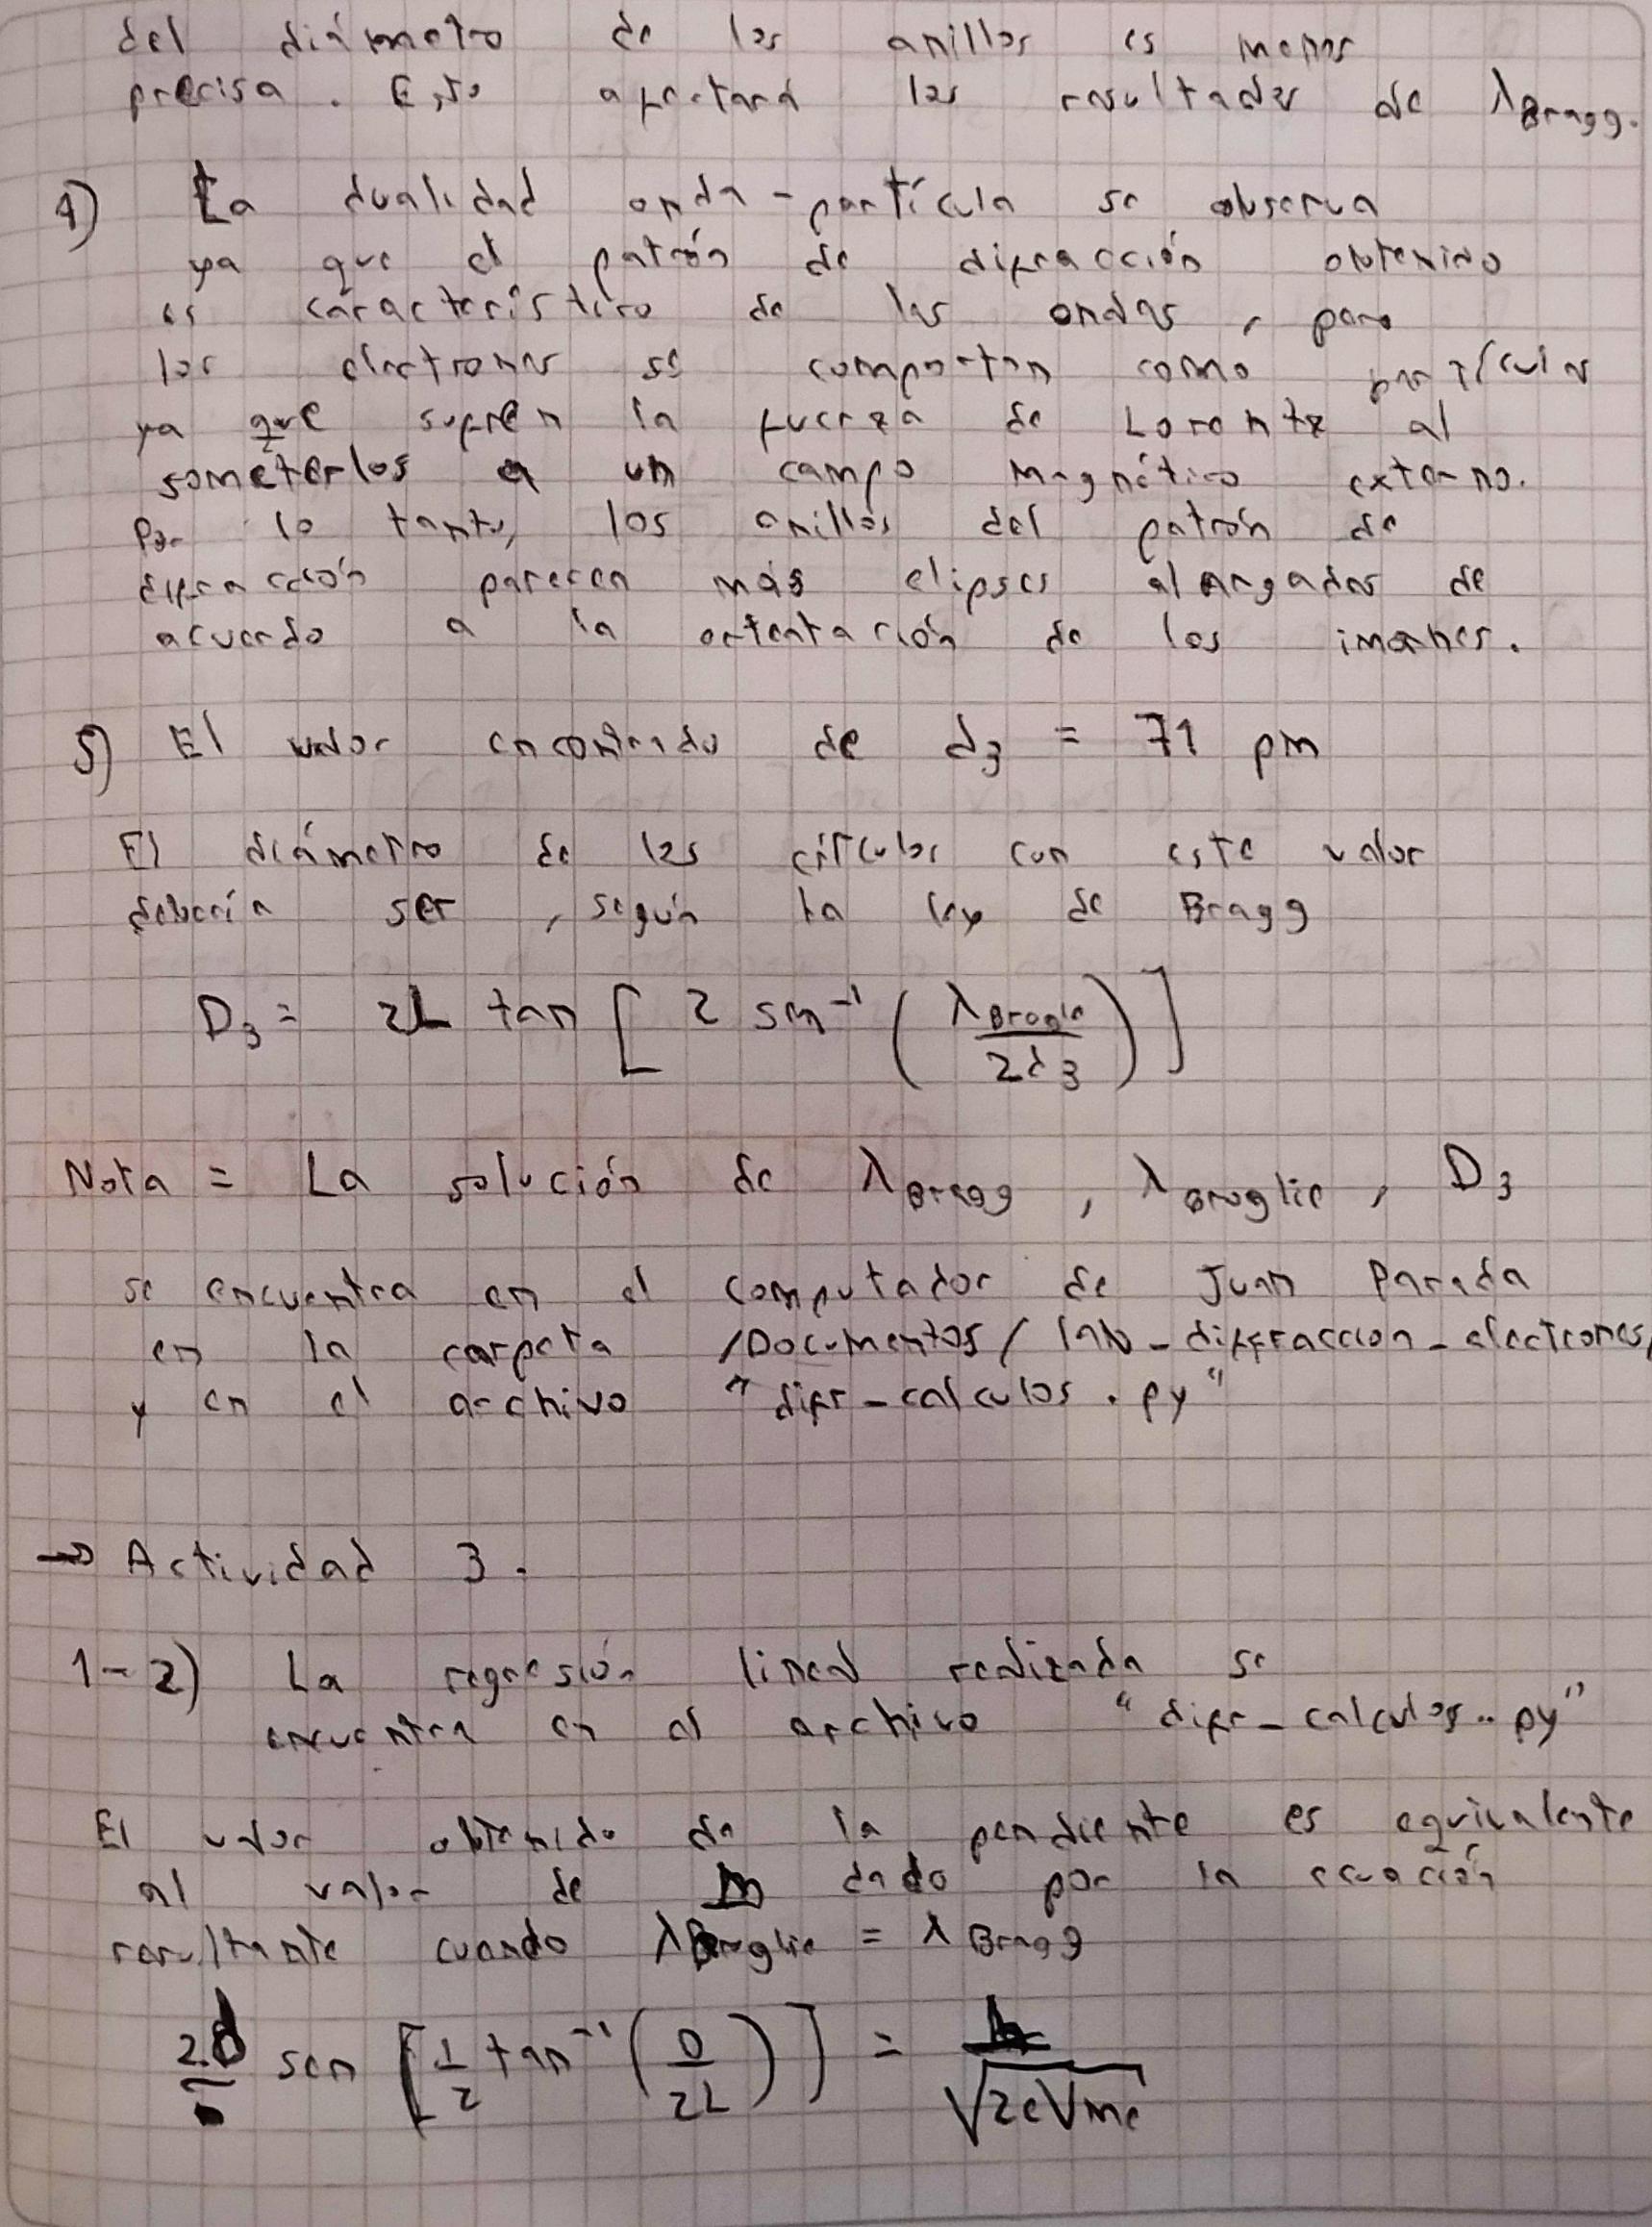 del diámetro de los anillos es menos
precisa. Esto afectará los resultados de λBragg.
4) La dualidad onda-partícula se observa
ya que el patrón de difracción obtenido
es característico de las ondas, pero
los electrones se comportan como partículas
ya que sufren la fuerza de Lorentz al
someterlos a un campo magnético externo.
Por lo tanto, los anillos del patrón de
difracción parecen más elipses alargadas de
acuerdo a la orientación de los imanes.
5) El valor encontrado de d₃ = 71 pm
El diámetro de los círculos con este valor
debería ser, según la ley de Bragg
D₃ = 2L tan [ 2 sin⁻¹ ( λBroglie / 2d₃ ) ]
Nota = La solución de λBragg, λBroglie, D₃
se encuentra en el computador de Juan Parada
en la carpeta /Documentos/lab_difraccion_electrones/
y en el archivo "difr_calculos.py"
→ Actividad 3.
1-2) La regresión lineal realizada se
encuentra en el archivo "difr_calculos..py"
El valor obtenido de la pendiente es equivalente
al valor de dado por la ecuación
resultante cuando λBroglie = λBragg
2d sen [ 1/2 tan⁻¹ ( D / 2L ) ] = h / √2eVme